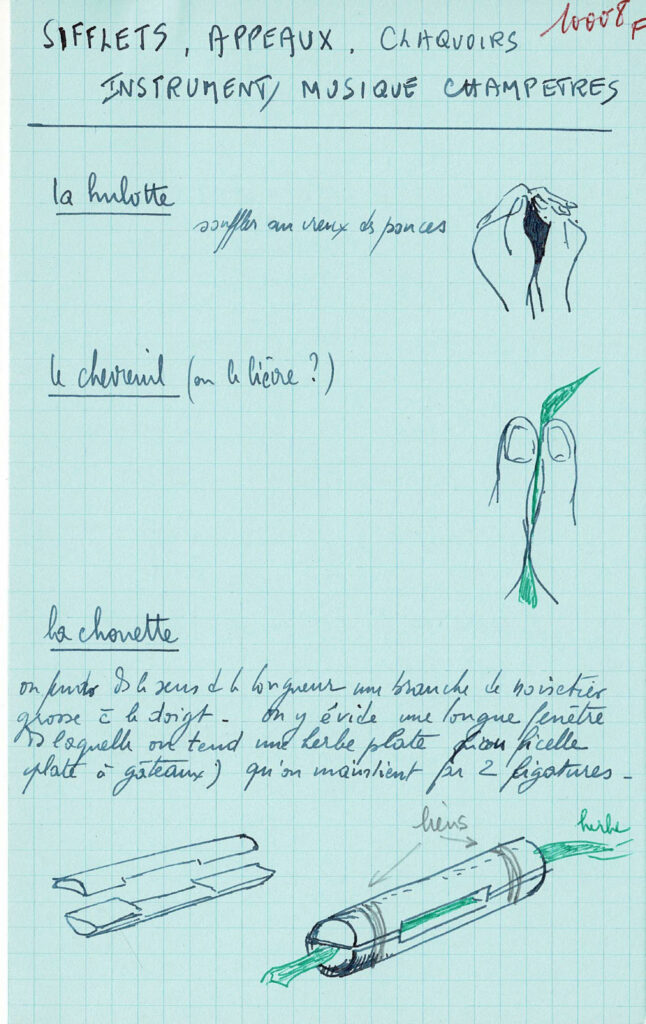 10008 F
SIFFLETS, APPEAUX, CLAQUOIRS
INSTRUMENT/ MUSIQUE CHAMPETRES
la hulotte
souffler au creux des pouces
le chevreuil (ou le lièvre ?)
la chouette
on fend ds le sens de la longueur une branche de noisetier
grosse c le doigt - on y évide une longue fenêtre
ds laquelle on tend une herbe plate ficelle
plate à gâteaux) qu'on maintient par 2 ligatures -
liens
herbe